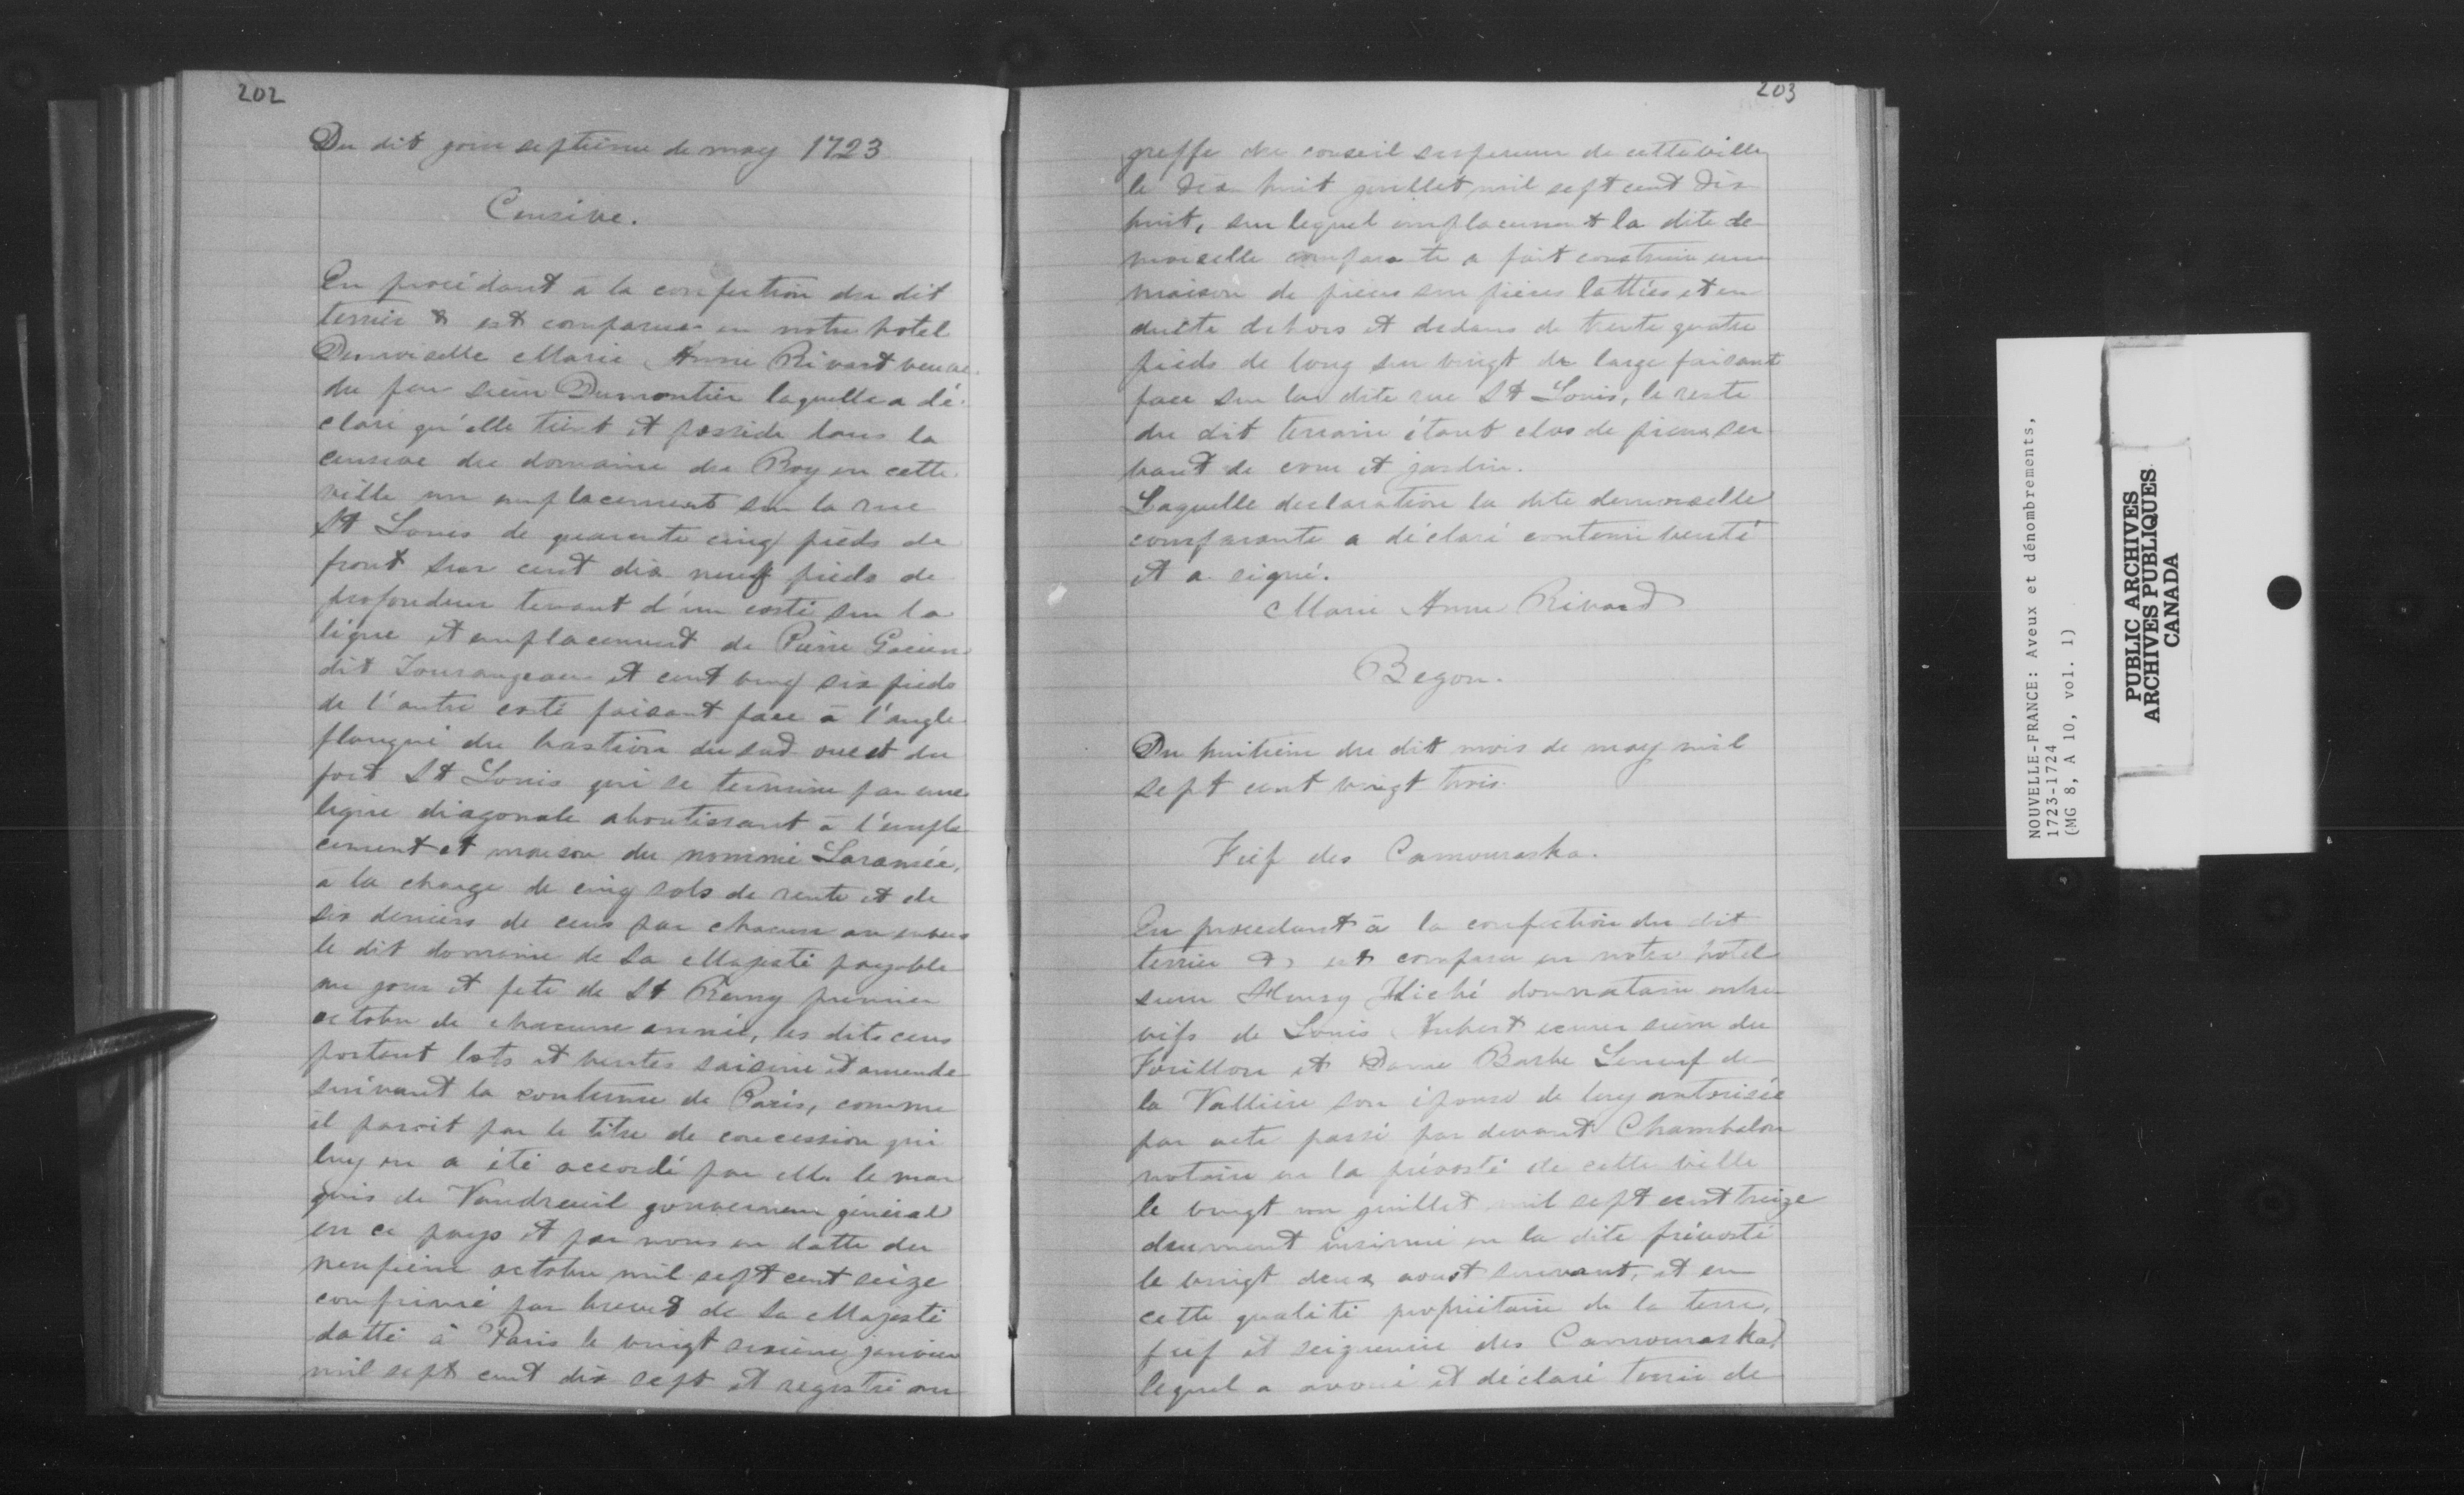 202
Du dit jour septieme de may 1723
Censive.
En procédant à la confection du dit
terrier & est comparue en notre hotel
Demoiselle Marie Anne Rivard veuve
du feu sieur Dumontier laquelle a dé-
claré qu'elle tient et possède dans la
censive du domaine du Roy en cette
ville un emplacement sur la rue
St Louis de quarante cinq pieds de
front sur cent dix neuf pieds de
profondeur tenant d'un costé sur la
ligne et emplacement de Pierre
dit Tourangeau et cent vingt six pieds
de l'autre costé faisant face à l'angle
flanqué du bastion du sud ouest du
fort St Louis qui se termine par une
ligne diagonale aboutissant à l'empla
cement et maison du nommé Laramée,
a la charge de cinq sols de rente et de
six deniers de cens par chacun an envers
le dit domaine de Sa Majesté payable
au jour et fete de St Remy premier
octobre de chacune année, les dits cens
portant lots et ventes saisine et amende
suivant la coutume de Paris, comme
il paroit par le titre de concession qui
luy en a été accordé par Mr le mar
quis de Vaudreuil gouverneur général
en ce pays et par nous en datte du
neufieme octobre mil sept cent seize
confirmé par brevet de Sa Majesté
datté à Paris le vingt sixieme janvier
mil sept cent dix sept et registré au
203
greffe du conseil superieur de cette ville
le dix huit juillet mil sept cent dix
huit, sur lequel emplacement la dite de
moiselle comparante a fait construire une
maison de pieces sur pieces lattées et en
duitte dehors et dedans de trente quatre
pieds de long sur vingt de large faisant
face sur la dite rue St Louis, le reste
du dit terrain étant clos de pieux ser
vant de cour et jardin.
Laquelle declaration la dite demoiselle
comparante a déclaré contenir verité
et a signé.
Marie Anne Rivard
Begon.
Du huitieme du dit mois de may mil
sept cent vingt trois.
Fief des Camouraska.
En procedant à la confection du dit
terrier &, est comparu en notre hotel
sieur Henry Hiché donnataire entre
vifs de Louis Aubert ecuier sieur du
Forillon et Dame Barbe Leneuf de
la Valliere son épouse de luy autorisée
par acte passé par devant Chambalon
notaire en la prévosté de cette ville
le vingt un juillet mil sept cent treize
deuement insinué en la dite prévosté
le vingt deux aoust suivant, et en
cette qualité propriétaire de la terre,
fief et seigneurie des Camouraska,
lequel a avoué et déclaré tenir de
NOUVELLE-FRANCE: Aveux et dénombrements,
1723-1724
(MG 8, A 10, vol. 1)
PUBLIC ARCHIVES
ARCHIVES PUBLIQUES
CANADA